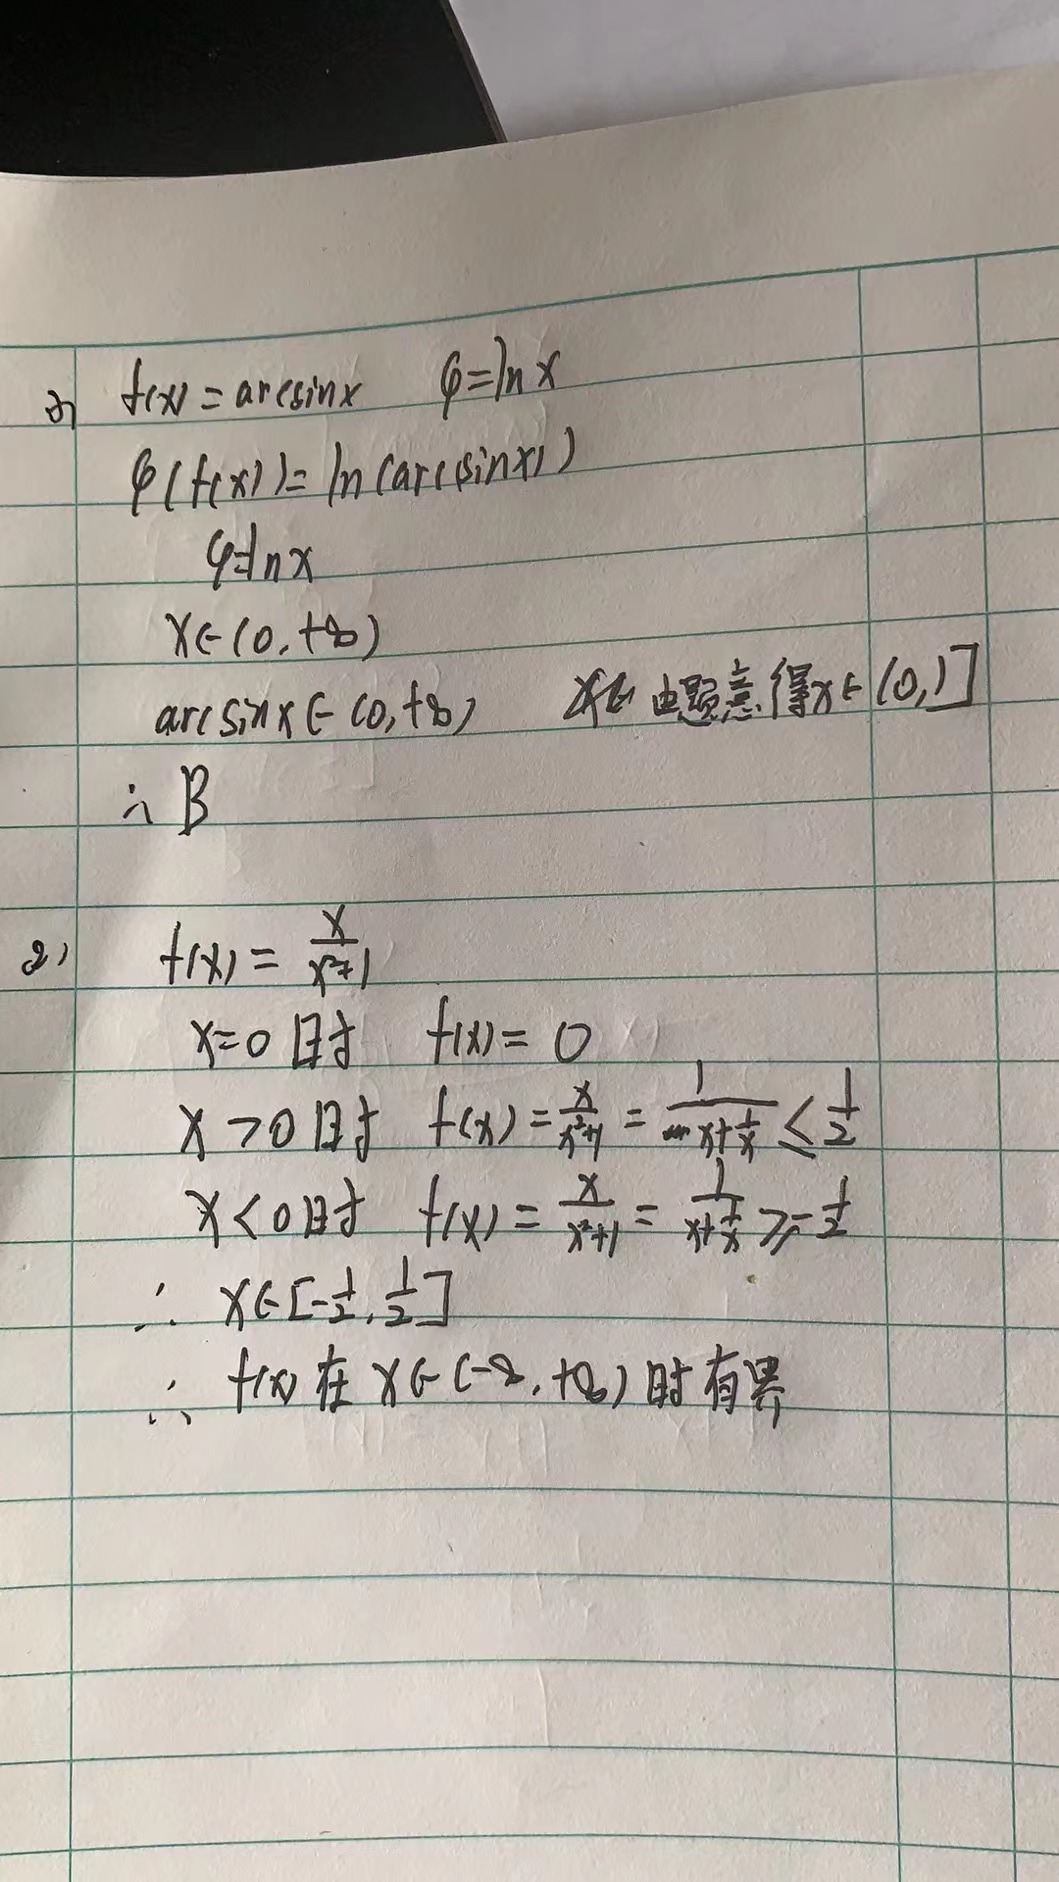 1) f(x)=arcsinx φ=lnx
φ(f(x))=ln(arcsinx)
φ=lnx
x∈(0,+∞)
arcsinx∈(0,+∞) 由题意得x∈(0,1]
∴B
2) f(x)=x/(x²+1)
x=0时 f(x)=0
x>0时 f(x)=x/(x²+1)=1/(x+1/x)≤1/2
x<0时 f(x)=x/(x²+1)=1/(x+1/x)≥-1/2
∴ x∈[-1/2,1/2]
∴ f(x)在x∈(-∞,+∞)时有界